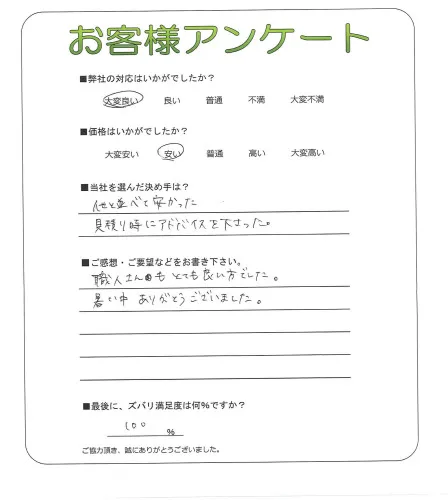 お客様アンケート
■弊社の対応はいかがでしたか？
大変良い 良い 普通 不満 大変不満
■価格はいかがでしたか？
大変安い 安い 普通 高い 大変高い
■当社を選んだ決め手は？
他と並べて安かった
見積り時にアドバイスを下さった。
■ご感想・ご要望などをお書き下さい。
職人さんもとても良い方でした。
暑い中ありがとうございました。
■最後に、ズバリ満足度は何％ですか？
100 ％
ご協力頂き、誠にありがとうございました。